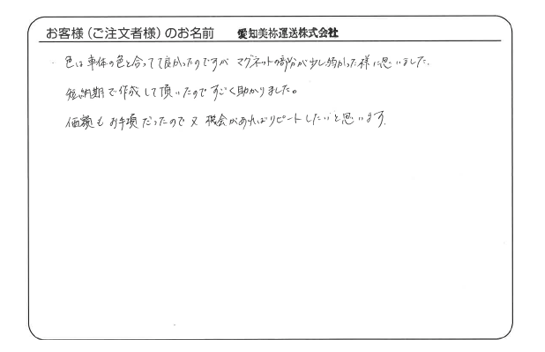 お客様（ご注文者様）のお名前　愛知美祢運送株式会社
色は車体の色と合ってて良かったのですが マグネットの部分が少し弱かった様に思いました。
短納期で作成して頂いたのですごく助かりました。
価額もお手頃だったので又機会があればリピートしたいと思います。